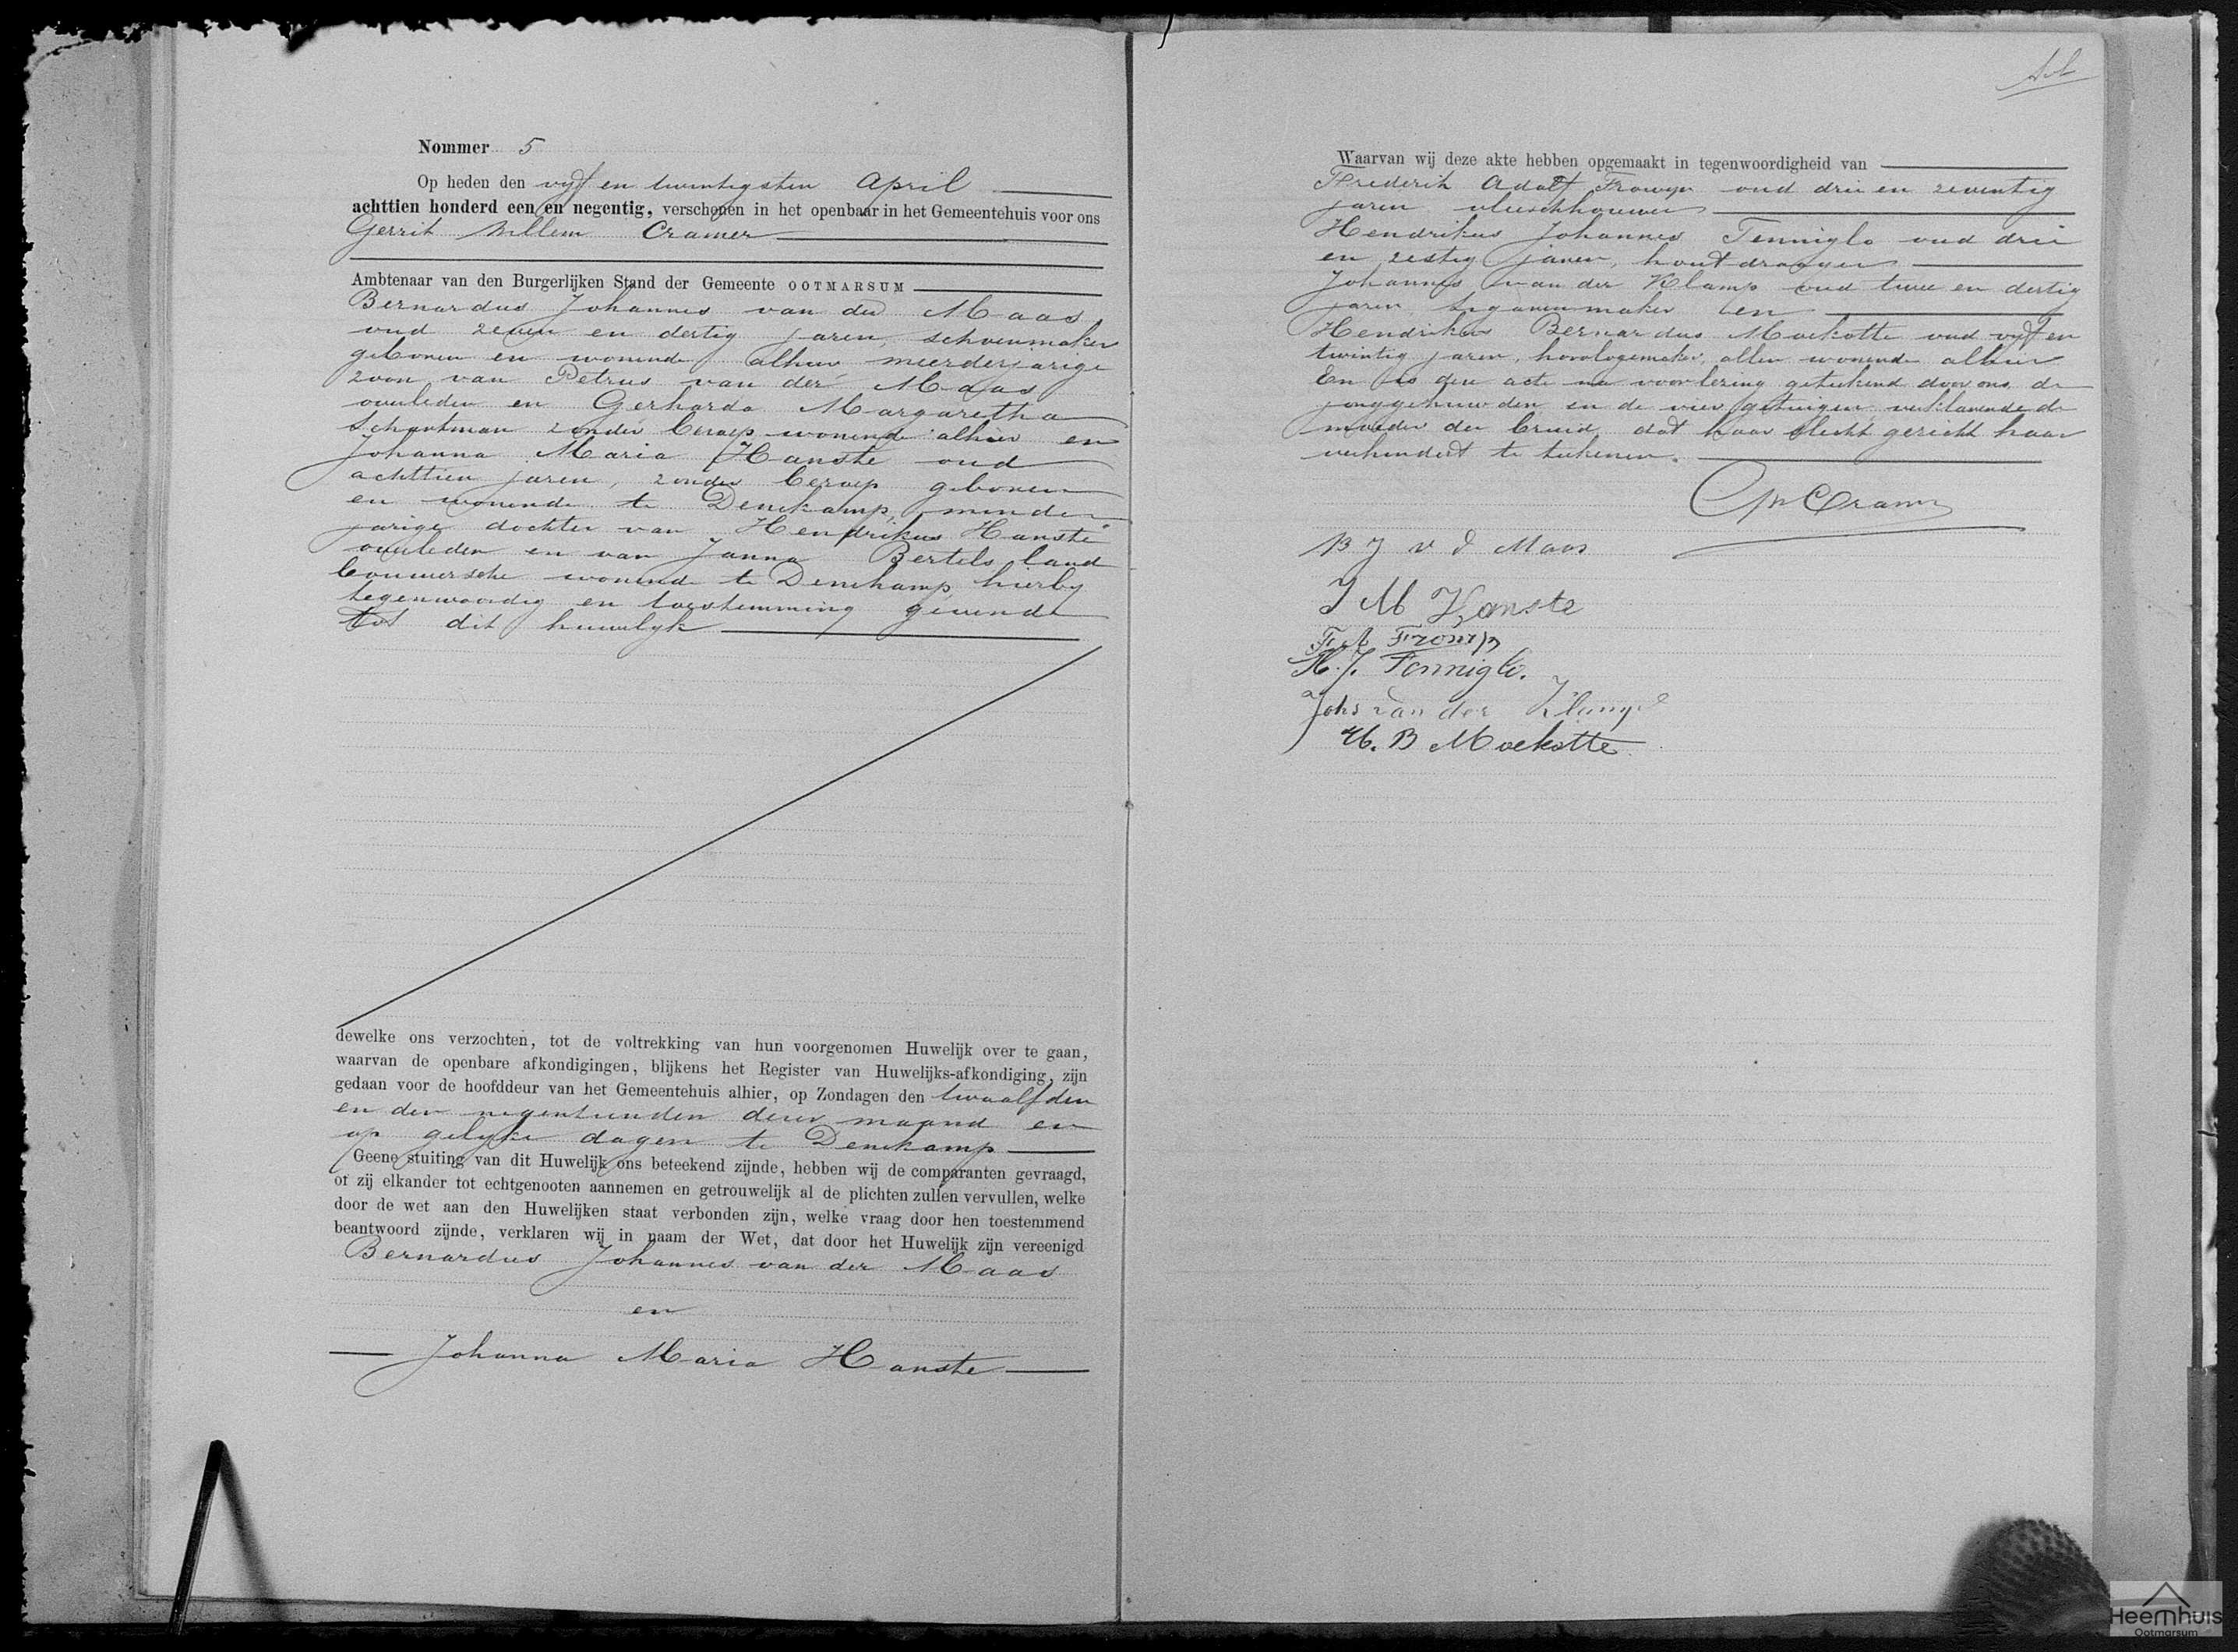 Nommer 5
Op heden den vijf en twintigsten April
achttien honderd een en negentig, verschenen in het openbaar in het Gemeentehuis voor ons
Gerrit Willem Cramer
Ambtenaar van den Burgerlijken Stand der Gemeente OOTMARSUM
Bernardus Johannes van der Maas
oud zeven en dertig jaren, schoenmaker
geboren en wonende alhier meerderjarige
zoon van Petrus van der Maas
overleden en Gerharda Margaretha
Schartman zonder beroep wonende alhier en
Johanna Maria Hanste oud
achttien jaren, zonder beroep geboren
en wonende te Denekamp, minder
jarige dochter van Hendrikus Hanste
overleden en van Janna Bertels land
bouwersche wonende te Denekamp, hierby
tegenwoordig en toestemming gevende
tot dit huwelyk
dewelke ons verzochten, tot de voltrekking van hun voorgenomen Huwelijk over te gaan,
waarvan de openbare afkondigingen, blijkens het Register van Huwelijks-afkondiging, zijn
gedaan voor de hoofddeur van het Gemeentehuis alhier, op Zondagen den twaalfden
en den negentienden dezer maand en
op gelyke dagen te Denekamp
Geene stuiting van dit Huwelijk ons beteekend zijnde, hebben wij de comparanten gevraagd,
of zij elkander tot echtgenooten aannemen en getrouwelijk al de plichten zullen vervullen, welke
door de wet aan den Huwelijken staat verbonden zijn, welke vraag door hen toestemmend
beantwoord zijnde, verklaren wij in naam der Wet, dat door het Huwelijk zijn vereenigd
Bernardus Johannes van der Maas
en
Johanna Maria Hanste
Waarvan wij deze akte hebben opgemaakt in tegenwoordigheid van
Frederik Adolf Frowyn oud drie en zeventig
jaren vleeschhouwer
Hendrikus Johannes Tenniglo oud drie
en zestig jaren, houtdraayer
Johannes van der Klamp oud twee en dertig
jaren sigarenmaker en
Hendrikus Bernardus Moekotte oud vyf en
twintig jaren, horologemaker, allen wonende alhier
En is deze acte na voorlezing geteekend door ons, de
jonggehuwden en de vier getuigen verklarende de
moeder der bruid, dat haar slecht gezicht haar
verhindert te teekenen.
GW Cramer
B J v d Maas
J M Hanste
F. A Frowyn
H. J. Tenniglo.
Johs van der Klamp
H. B Moekotte
Heemhuis
Ootmarsum